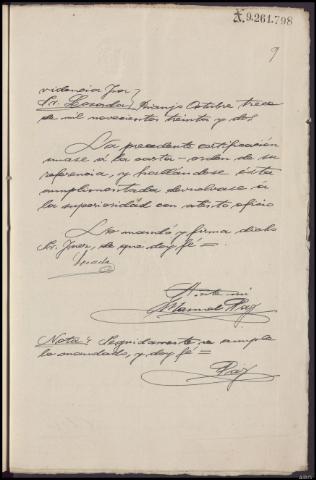 A.9.261.798
9
videncia Juez
Sr. Losada. Naranjo Octubre trece
de mil novecientos treinta y dos
La precedente certificación
unase á la carta-orden de su
referencia, y hallandose ésta
cumplimentada devuelvase á
la superioridad con atento oficio
Lo mandó y firma dicho
Sr. Juez, de que doy fé =
Losada
Ante mi
Manuel Paz
Nota: Seguidamente se cumple
lo mandado, y doy fé =
Paz